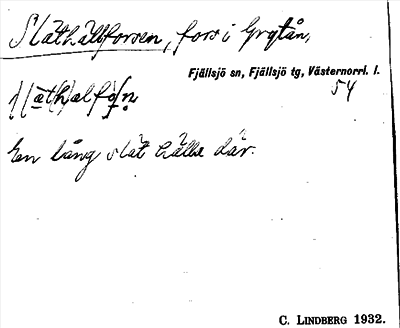 Släthällforsen, fors i Grytån,
Fjällsjö sn, Fjällsjö tg, Västernorrl. l.
54
En lång slät hälla där.
C. LINDBERG 1932.